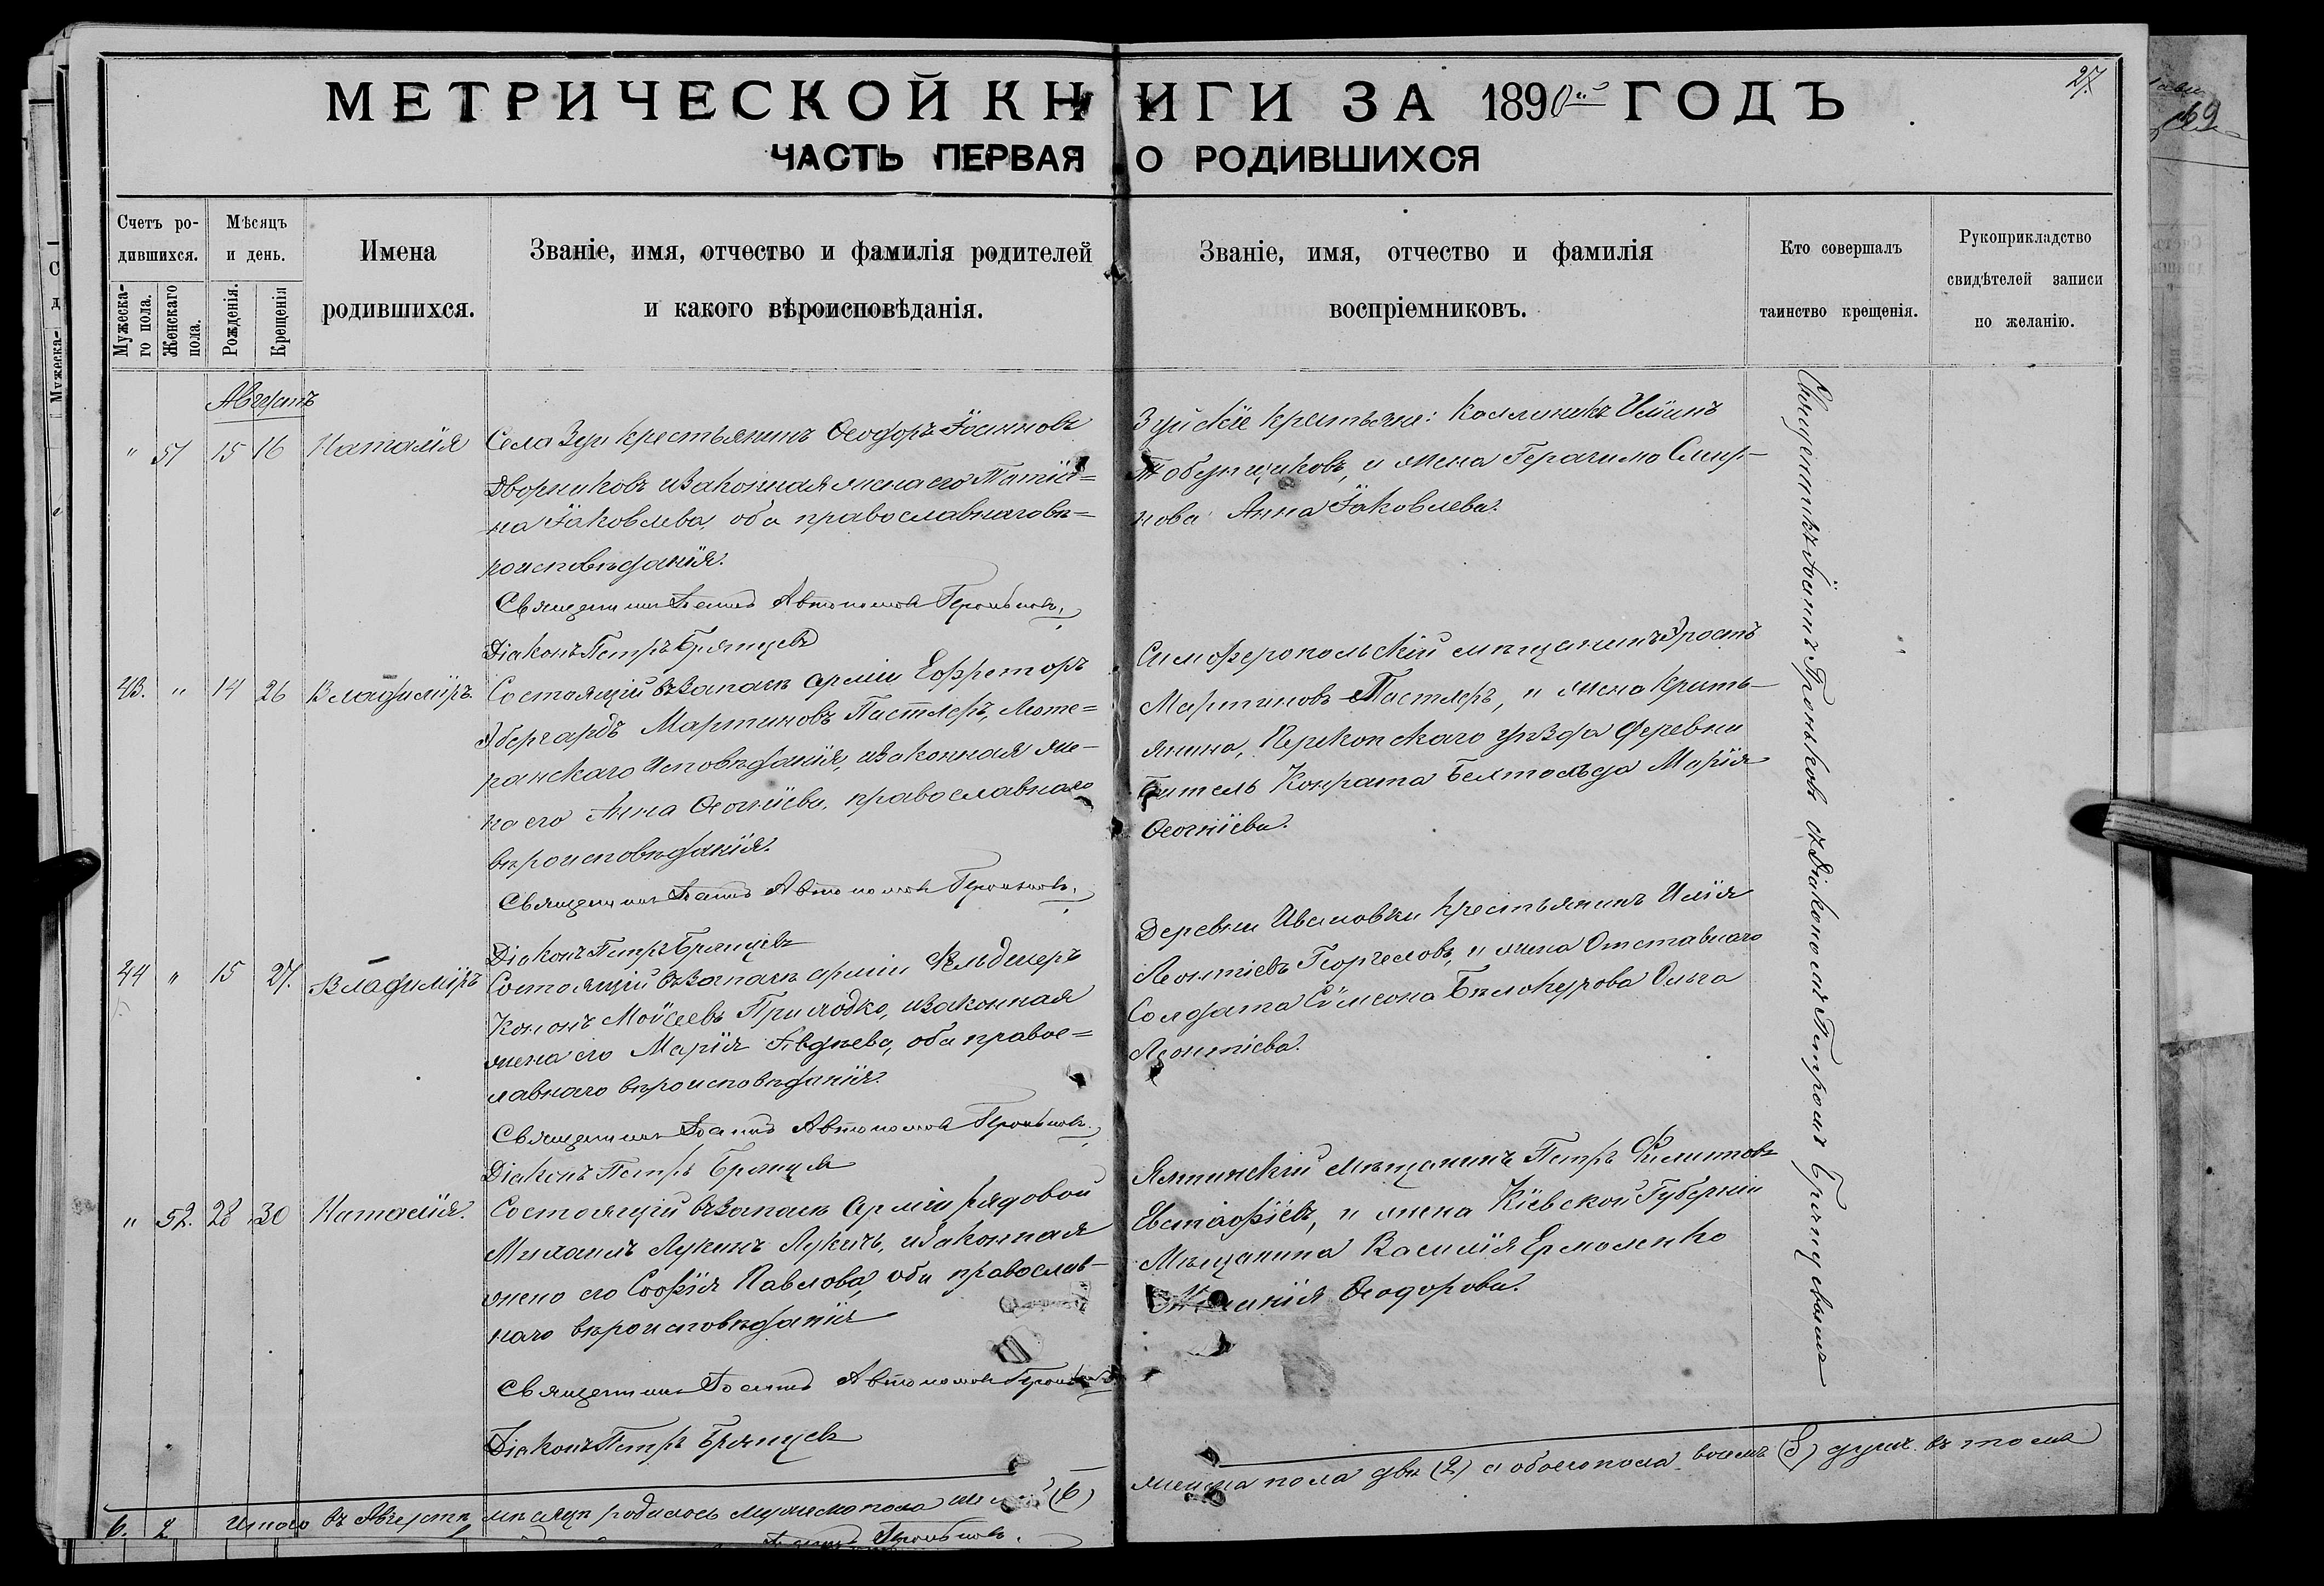 МЕТРИЧЕСКОЙ КНИГИ ЗА 1890й ГОДЪ
27
ЧАСТЬ ПЕРВАЯ О РОДИВШИХСЯ
Счетъ родившихся.
Мужескаго пола.
Женскаго пола.
Мѣсяцъ и день.
Рожденія.
Крещенія
Имена
родившихся.
Званіе, имя, отчество и фамилія родителей
и какого вѣроисповѣданія.
Званіе, имя, отчество и фамилія
воспріемниковъ.
Кто совершалъ
таинство крещенія.
Рукоприкладство
свидѣтелей записи
по желанію.
Августъ
" 51 15 16 Наталія
Села Зуи крестьянинъ Ѳеодоръ Іоанновъ
Дворниковъ и законная жена его Татіа=
на Іаковлева, оба православнаго вѣ=
роисповѣданія.
Священникъ Іоаннъ Автономовъ
Діаконъ Петръ Брянцевъ
Зуйскіе крестьяне: Каллиникъ Иліинъ
и жена Герасима Смир-
нова Анна Іаковлева.
43. " 14 26 Владиміръ.
Состоящій въ запасѣ арміи Ефрейторъ
Эбергардъ Мартиновъ Пастлеръ, Люте=
ранскаго исповѣданія, и законная же-
на его Анна православнаго
вѣроисповѣданія.
Священникъ Іоаннъ Автономовъ
Діаконъ Петръ Брянцевъ
Симферопольскій мѣщанинъ Эрастъ
Мартиновъ Пастлеръ, и жена кресть-
янина, Перекопскаго уѣзда деревни
Конрата Марія
44 " 15 27. Владиміръ
Состоящій въ запасѣ арміи Фельдшеръ
Кононъ Моисеевъ Приходко, и законная
жена его Марія Авдѣева, оба правос=
лавнаго вѣроисповѣданія.
Священникъ Іоаннъ Автономовъ
Діаконъ Петръ Брянцевъ
Деревни Ивановки крестьянинъ Илія
Леонтіевъ и жена Отставнаго
Солдата Сімеона Бѣлокурова Ольга
Леонтіева.
" 52. 28 30 Наталія.
Состоящій въ запасѣ Арміи рядовой
Михаилъ Лукинъ Лукичъ, и законная
жена его Софія Павлова, оба православ-
наго вѣроисповѣданія
Священникъ Іоаннъ Автономовъ
Діаконъ Петръ Брянцевъ
Ялтинскій мѣщанинъ Петръ Филиповъ
Евстафіевъ, и жена Кіевской Губерніи
Мѣщанина Василія Ермоленко
Ѳеодорова.
Священникъ Іоаннъ съ Діакономъ Петромъ Брянцевымъ
6. 2 Итого въ Августѣ мѣсяцѣ родилось мужеска пола (6)
женска пола двѣ (2) а обоего пола восемь (8) душъ.